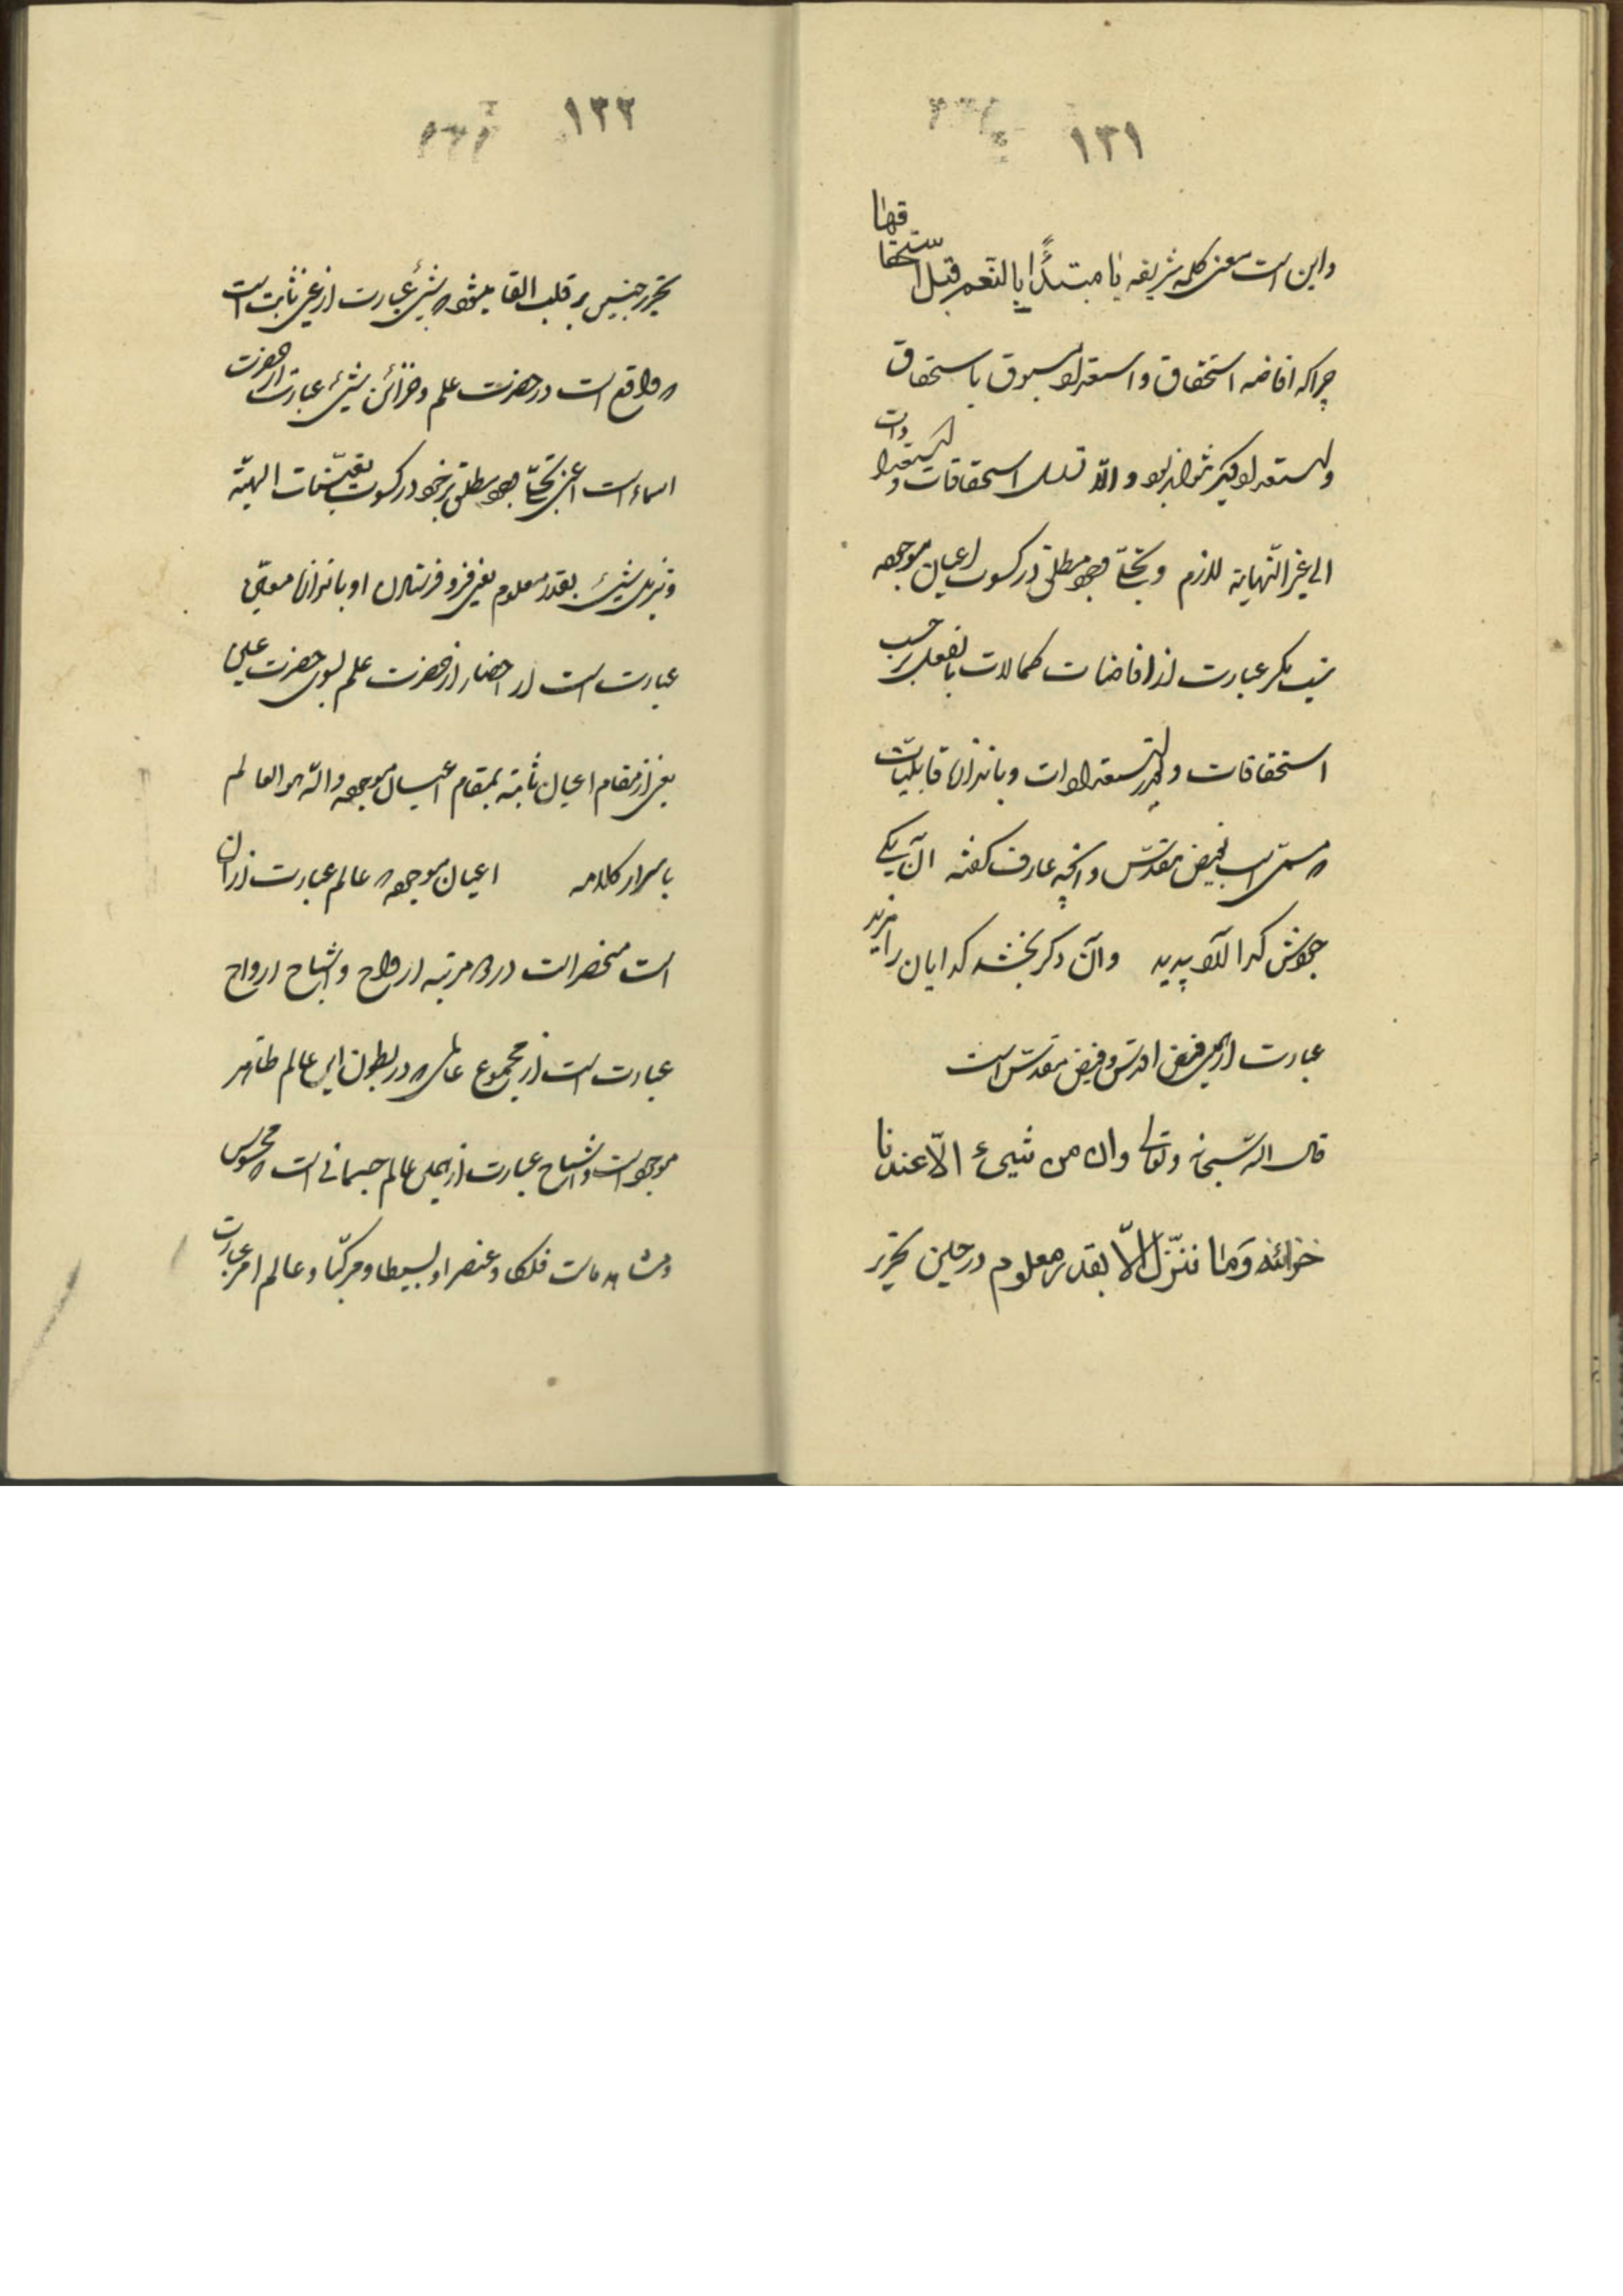 ١٣١
واین است معنی کلمه شریفه یا مبتدئا بالنعم قبل استحقاقها
چرا که افاضه استحقاق و استعداد مسبوق باستحقاق
و استعداد دیگر نتواند بود و الا تسلسل استحقاقات و استعدادات
الی غیر النهایة لازم و تجلی وجود مطلق در کسوت اعیان موجوده
نیست مگر عبارت از افاضات کمالات بالفعل بر حسب
استحقاقات و بقدر استعدادات و باندازه قابلیات
که مسمی است بفیض مقدس و آنچه عارف گفته آن یکی
جودش گدا آرد پدید وآن دگر بخشد گدایان را مزید
عبارت از این فیض اقدس و فیض مقدس است
قال الله سبحانه وتعالی وان من شیء الّا عندنا
خزائنه وَما ننزّله الّا بقدر معلوم در حین تحریر
١٣٢
تحریر چنین بر قلب القا میشود که شیء عبارت از عین ثابت است
که واقع است در حضرت علم و خزائن شیء عبارت از حضرت
اسماء است اعنی تجلی وجود مطلق بر خود در کسوت تعینات الهیّه
و تنزیل شیء بقدر معلوم یعنی فرو فرستادن او باندازه معین
عبارت است از احضار از حضرت علم بسوی حضرت عین
یعنی از مقام اعیان ثابته بمقام اعیان موجوده والله هو العالم
باسرار کلامه اعیان موجوده که عالم عبارت از آن
است منحصر است در دو مرتبه ارواح و اشباح ارواح
عبارت است از مجموع عالمی که در بطون این عالم ظاهر
موجود است و اشباح عبارت از این عالم جسمانی است که محسوس
و مشاهد ماست فلکا و عنصرا و بسیطا و مرکبا و عالم امر عبارت